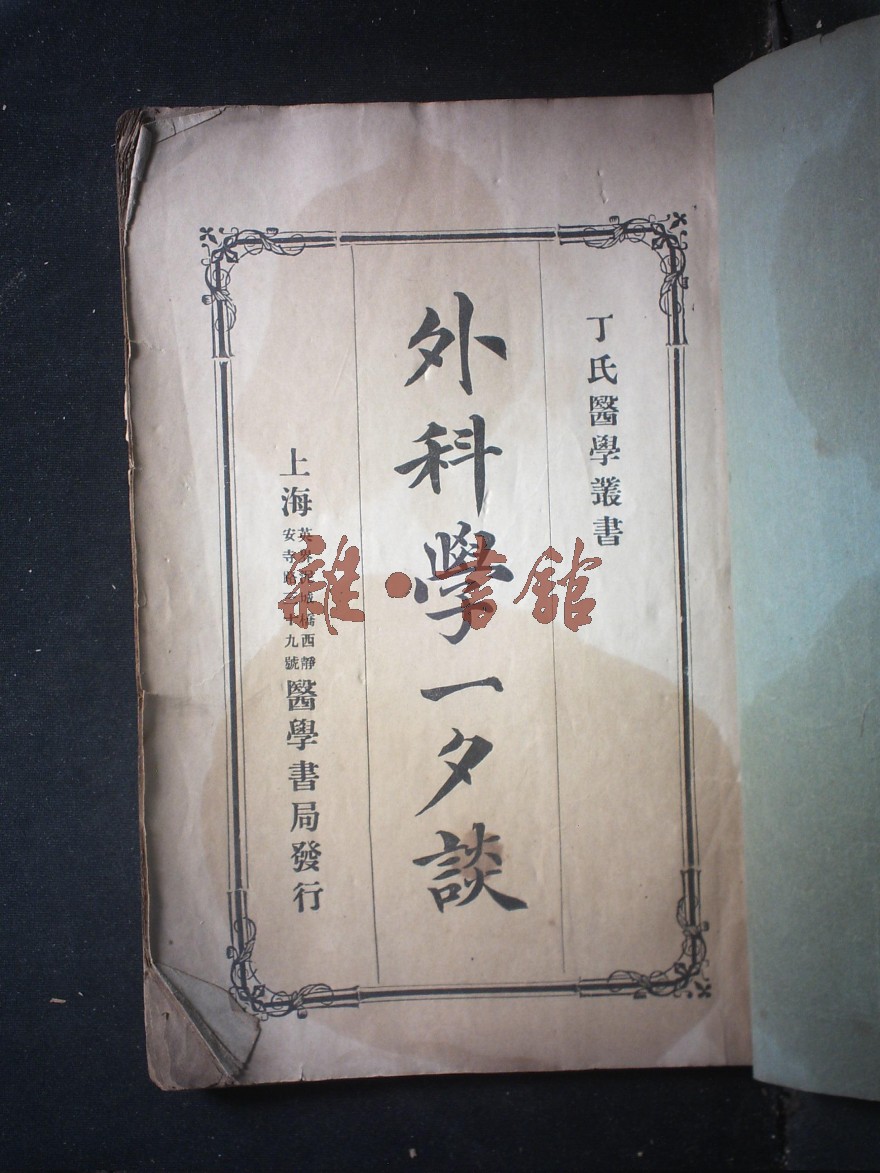 丁氏醫學叢書
外科學一夕談
上海
英
西靜
安寺
十九號
醫學書局發行
雜·書館